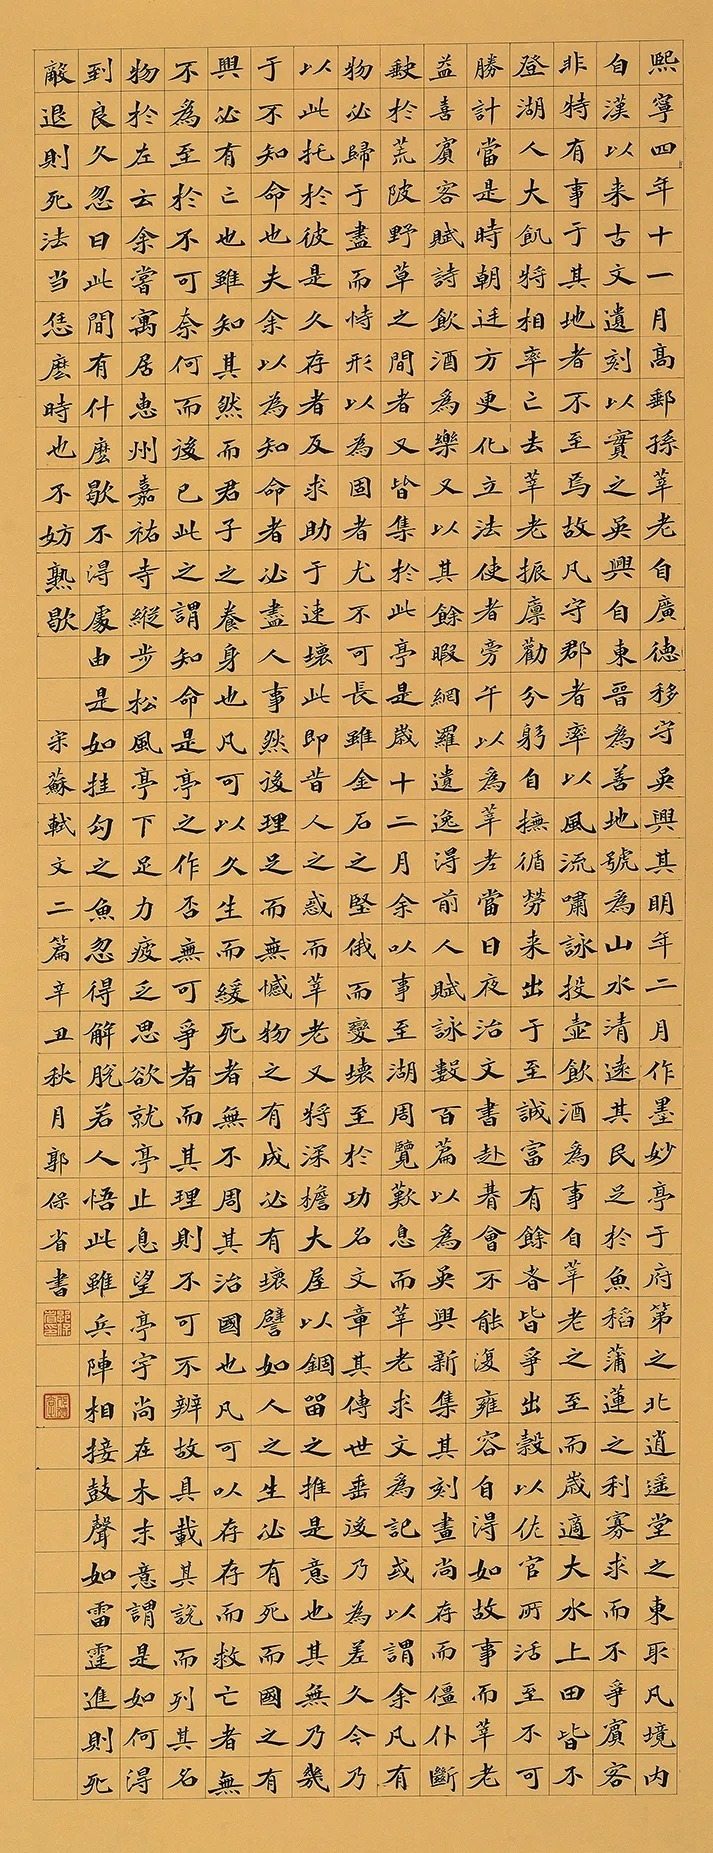 熙寧四年十一月高郵孫莘老自廣德移守吳興其明年二月作墨妙亭于府第之北逍遥堂之東取凡境内
自漢以来古文遺刻以實之吳興自東晉為善地號為山水清遠其民足於魚稻蒲蓮之利寡求而不爭賓客
非特有事于其地者不至焉故凡守郡者率以風流嘯詠投壺飲酒為事自莘老之至而歲適大水上田皆不
登湖人大飢將相率亡去莘老振廪勸分躬自撫循勞来出于至誠富有餘者皆爭出穀以佐官所活至不可
勝計當是時朝廷方更化立法使者旁午以為莘老當日夜治文書赴期會不能復雍容自得如故事而莘老
益喜賓客賦詩飲酒為樂又以其餘暇網羅遺逸得前人賦詠數百篇以為吳興新集其刻畫尚存而僵仆斷
缺於荒陂野草之間者又皆集於此亭是歲十二月余以事至湖周覽歎息而莘老求文為記或以謂余凡有
物必歸于盡而恃形以為固者尤不可長雖金石之堅俄而變壞至於功名文章其傳世垂後乃為差久今乃
以此托於彼是久存者反求助于速壞此即昔人之惑而莘老又将深檐大屋以錮留之推是意也其無乃幾
于不知命也夫余以為知命者必盡人事然後理足而無憾物之有成必有壞譬如人之生必有死而國之有
興必有亡也雖知其然而君子之養身也凡可以久生而緩死者無不周其治國也凡可以存存而救亡者無
不為至於不可奈何而後已此之謂知命是亭之作否無可爭者而其理則不可不辨故具載其説而列其名
物於左云余嘗寓居惠州嘉祐寺縱步松風亭下足力疲乏思欲就亭止息望亭宇尚在木末意謂是如何得
到良久忽曰此間有什麽歇不得處由是如挂勾之魚忽得解脱若人悟此雖兵陣相接鼓聲如雷霆進則死
敵退則死法当恁麽時也不妨熟歇 宋蘇軾文二篇辛丑秋月郭保省書